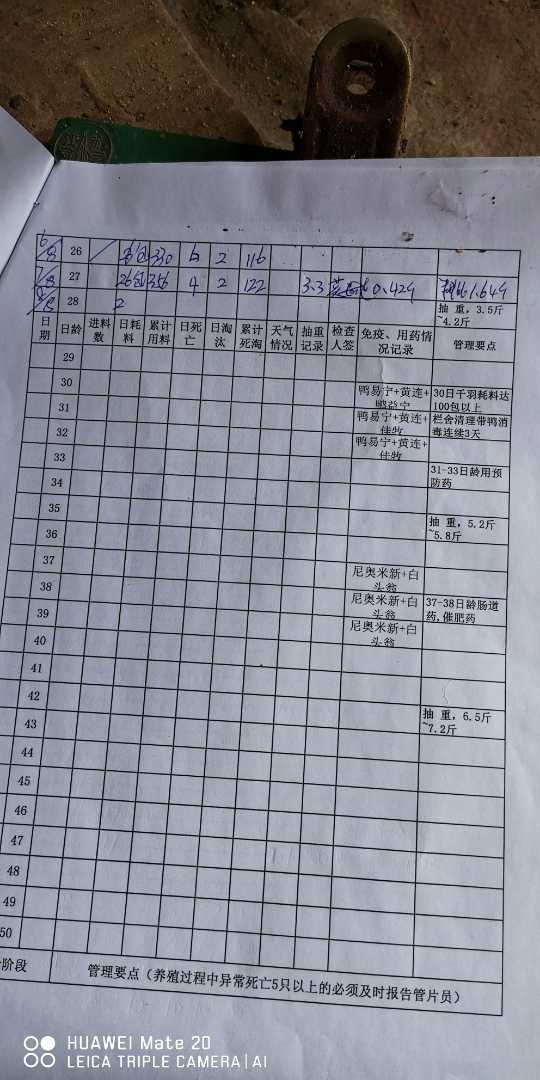 6/8 26 330 6 2 116
7/8 27 26包 356 4 2 122 3.3 0.429 1.649
28 2 抽 重，3.5斤
~4.2斤
日期 日龄 进料数 日耗料 累计用料 日死亡 日淘汰 累计死淘 天气情况 抽重记录 检查人签 免疫、用药情况记录 管理要点
29
30 鸭易宁+黄连+ 30日千羽耗料达
鸭益宁 100包以上
31 鸭易宁+黄连+ 栏舍清理带鸭消
佳牧 毒连续3天
32 鸭易宁+黄连+
佳牧
33 31-33日龄用预
防药
34
35 抽 重，5.2斤
~5.8斤
36
37 尼奥米新+白
头翁
38 尼奥米新+白 37-38日龄肠道
头翁 药,催肥药
39 尼奥米新+白
头翁
40
41
42 抽 重，6.5斤
~7.2斤
43
44
45
46
47
48
49
50
阶段 管理要点（养殖过程中异常死亡5只以上的必须及时报告管片员）
HUAWEI Mate 20
LEICA TRIPLE CAMERA | AI